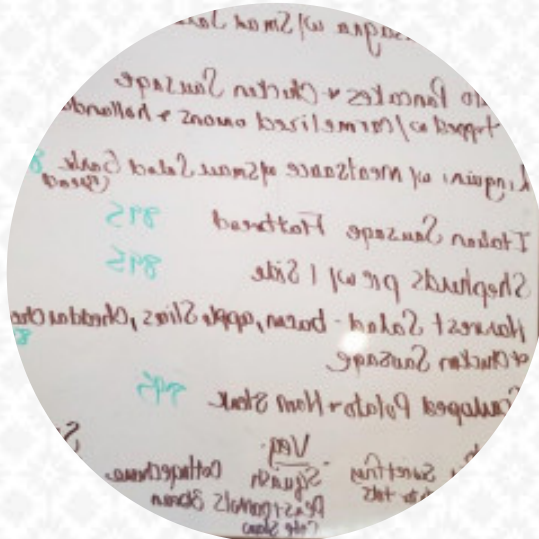 w/ Small
Pancakes & Chicken Sausage
topped w/ carmelized onions & holland
Linguini w/ meatsauce & small Salad Garlic
Bread
Italian Sausage Flatbread 895
Shepherds pie w/ 1 Side 895
Harvest Salad - bacon, apple Slices, Cheddar Che
& Chicken Sausage 8
Potato & Ham 895
Veg.
Squash Cottagecheese
Sweet fries tots Peas + carrots Green
Cole Slaw